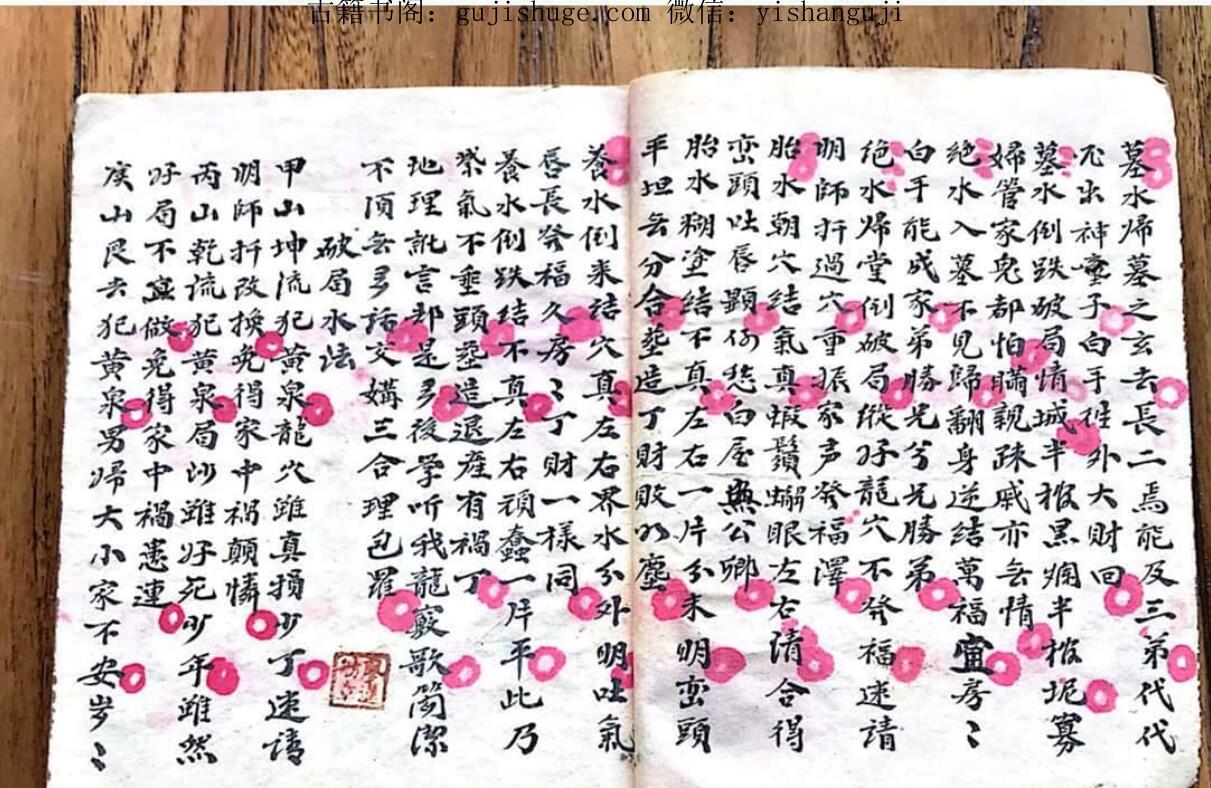 古籍书阁：gujishuge.com 微信：yishanguji
墓水歸墓之玄去長二焉能及三弟代代
出神童子白手性外大財回
墓水倒跌破局情城半椒黑爛半椒坭寡
婦管家鬼都怕瞞親疎戚亦无情
絶水入墓不見歸翻身逆結萬福宜房〻
白手能成家弟勝兄兮兄勝弟
绝水歸堂倒破局縱好龍穴不發福速請
明師扦過穴重振家声發福澤
胎水朝穴結氣真蝦鬚蠏眼左右清合得
峦頭吐唇顕何愁白屋無公卿
胎水糊塗結不真左右一片分未明峦頭
平坦无分合塟造丁財敗如塵
養水倒来結穴真左右界水分外明吐氣
唇長發福久房〻丁財一樣同
養水倒跌結不真左右頑蠢一片平此乃
紫氣不垂頭塟造退産有禍丁
地理訛言却是多後学听我龍竅歌简潔
不煩无多話交媾三合理包羅
破局水法
甲山坤流犯黄泉龍穴雖真損少丁速請
明師扦改換免得家中禍顛憐
丙山乾流犯黄泉局沙雖好死少年雖然
好局不宜做免得家中禍患連
庚山艮去犯黄泉男婦大小家不安岁〻